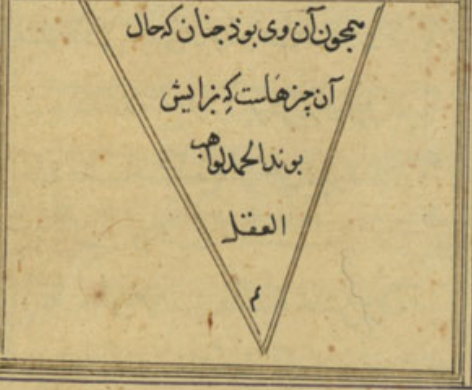 همچون آن وی بوذ جنان که حال
آن چیزهاست که بزایش
بوند الحمد لواهب
العقل
م